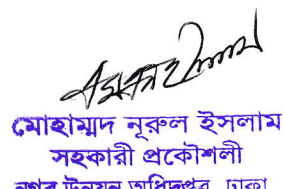 মোহাম্মদ নূরুল ইসলাম
সহকারী প্রকৌশলী
নগর উন্নয়ন অধিদপ্তর, ঢাকা